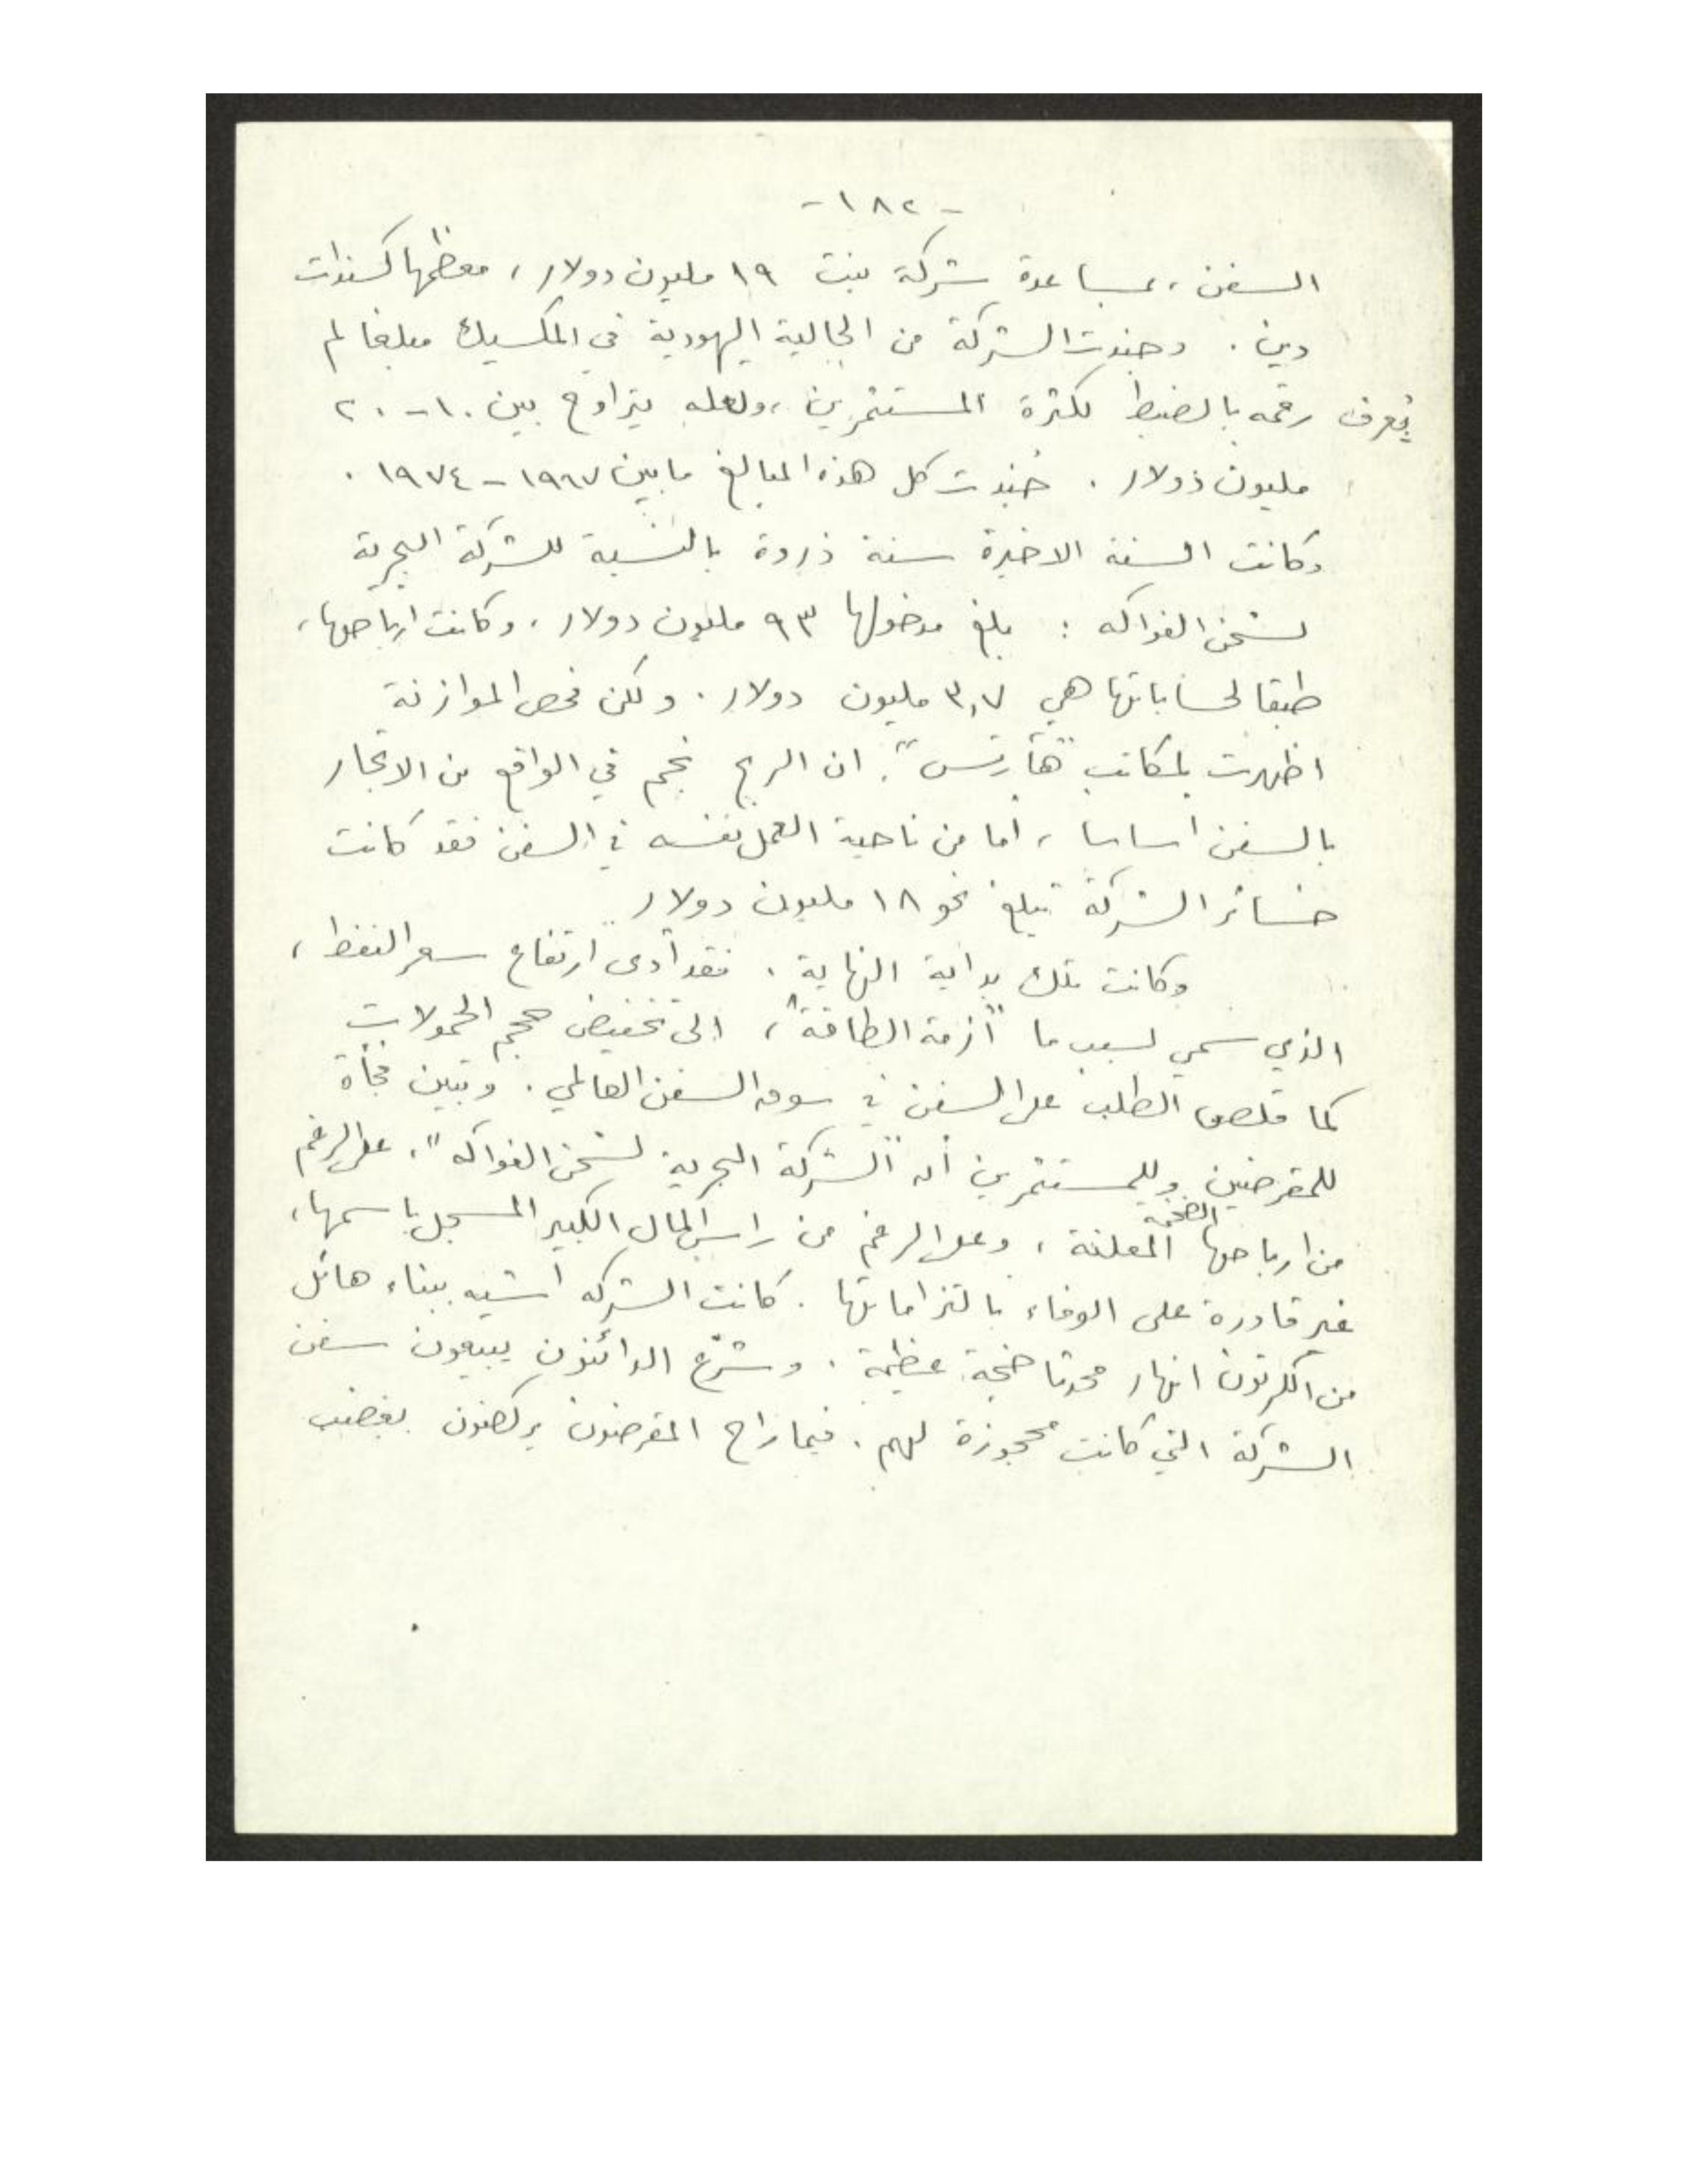 - ١٨٢ -
السفن، بمساعدة شركة بنت ١٩ مليون دولار، معظمها كسندات
دين. وجندت الشركة من الجالية اليهودية في المكسيك مبلغا لم
يُعرف رقمه بالضبط لكثرة المستثمرين، ولعله يتراوح بين ١٠-٢٠
مليون دولار. جُندت كل هذه المبالغ ما بين ١٩٦٧-١٩٧٤.
وكانت السنة الاخيرة سنة ذروة بالنسبة للشركة البحرية
لشحن الفواكه: بلغ مدخولها ٩٣ مليون دولار، وكانت ارباحها،
طبقا لحساباتها هي ٣,٧ مليون دولار. ولكن فحص الموازنة
اظهرت لمكاتب "هآرتس". ان الربح نجم في الواقع من الاتجار
بالسفن اساسا، أما من ناحية العمل نفسه في السفن فقد كانت
خسائر الشركة تبلغ نحو ١٨ مليون دولار
وكانت تلك بداية النهاية. فقد أدى ارتفاع سعر النفط،
الذي سمي لسبب ما "أزمة الطاقة"، الى تخفيض حجم الحمولات
كما قلص الطلب على السفن في سوق السفن العالمي. وتبين فجأة
للمقرضين وللمستثمرين أن "الشركة البحرية لشحن الفواكه"، على الرغم
من ارباحها الضخمة المعلنة، وعلى الرغم من راس المال الكبير المسجل باسمها،
غير قادرة على الوفاء بالتزاماتها. كانت الشركه اشبه ببناء هائل
من الكرتون انهار محدثا ضجة عظيمة. وشرع الدائنون يبيعون سفن
الشركة التي كانت محجوزة لهم. فيما راح المقرضون يركضون بغضب